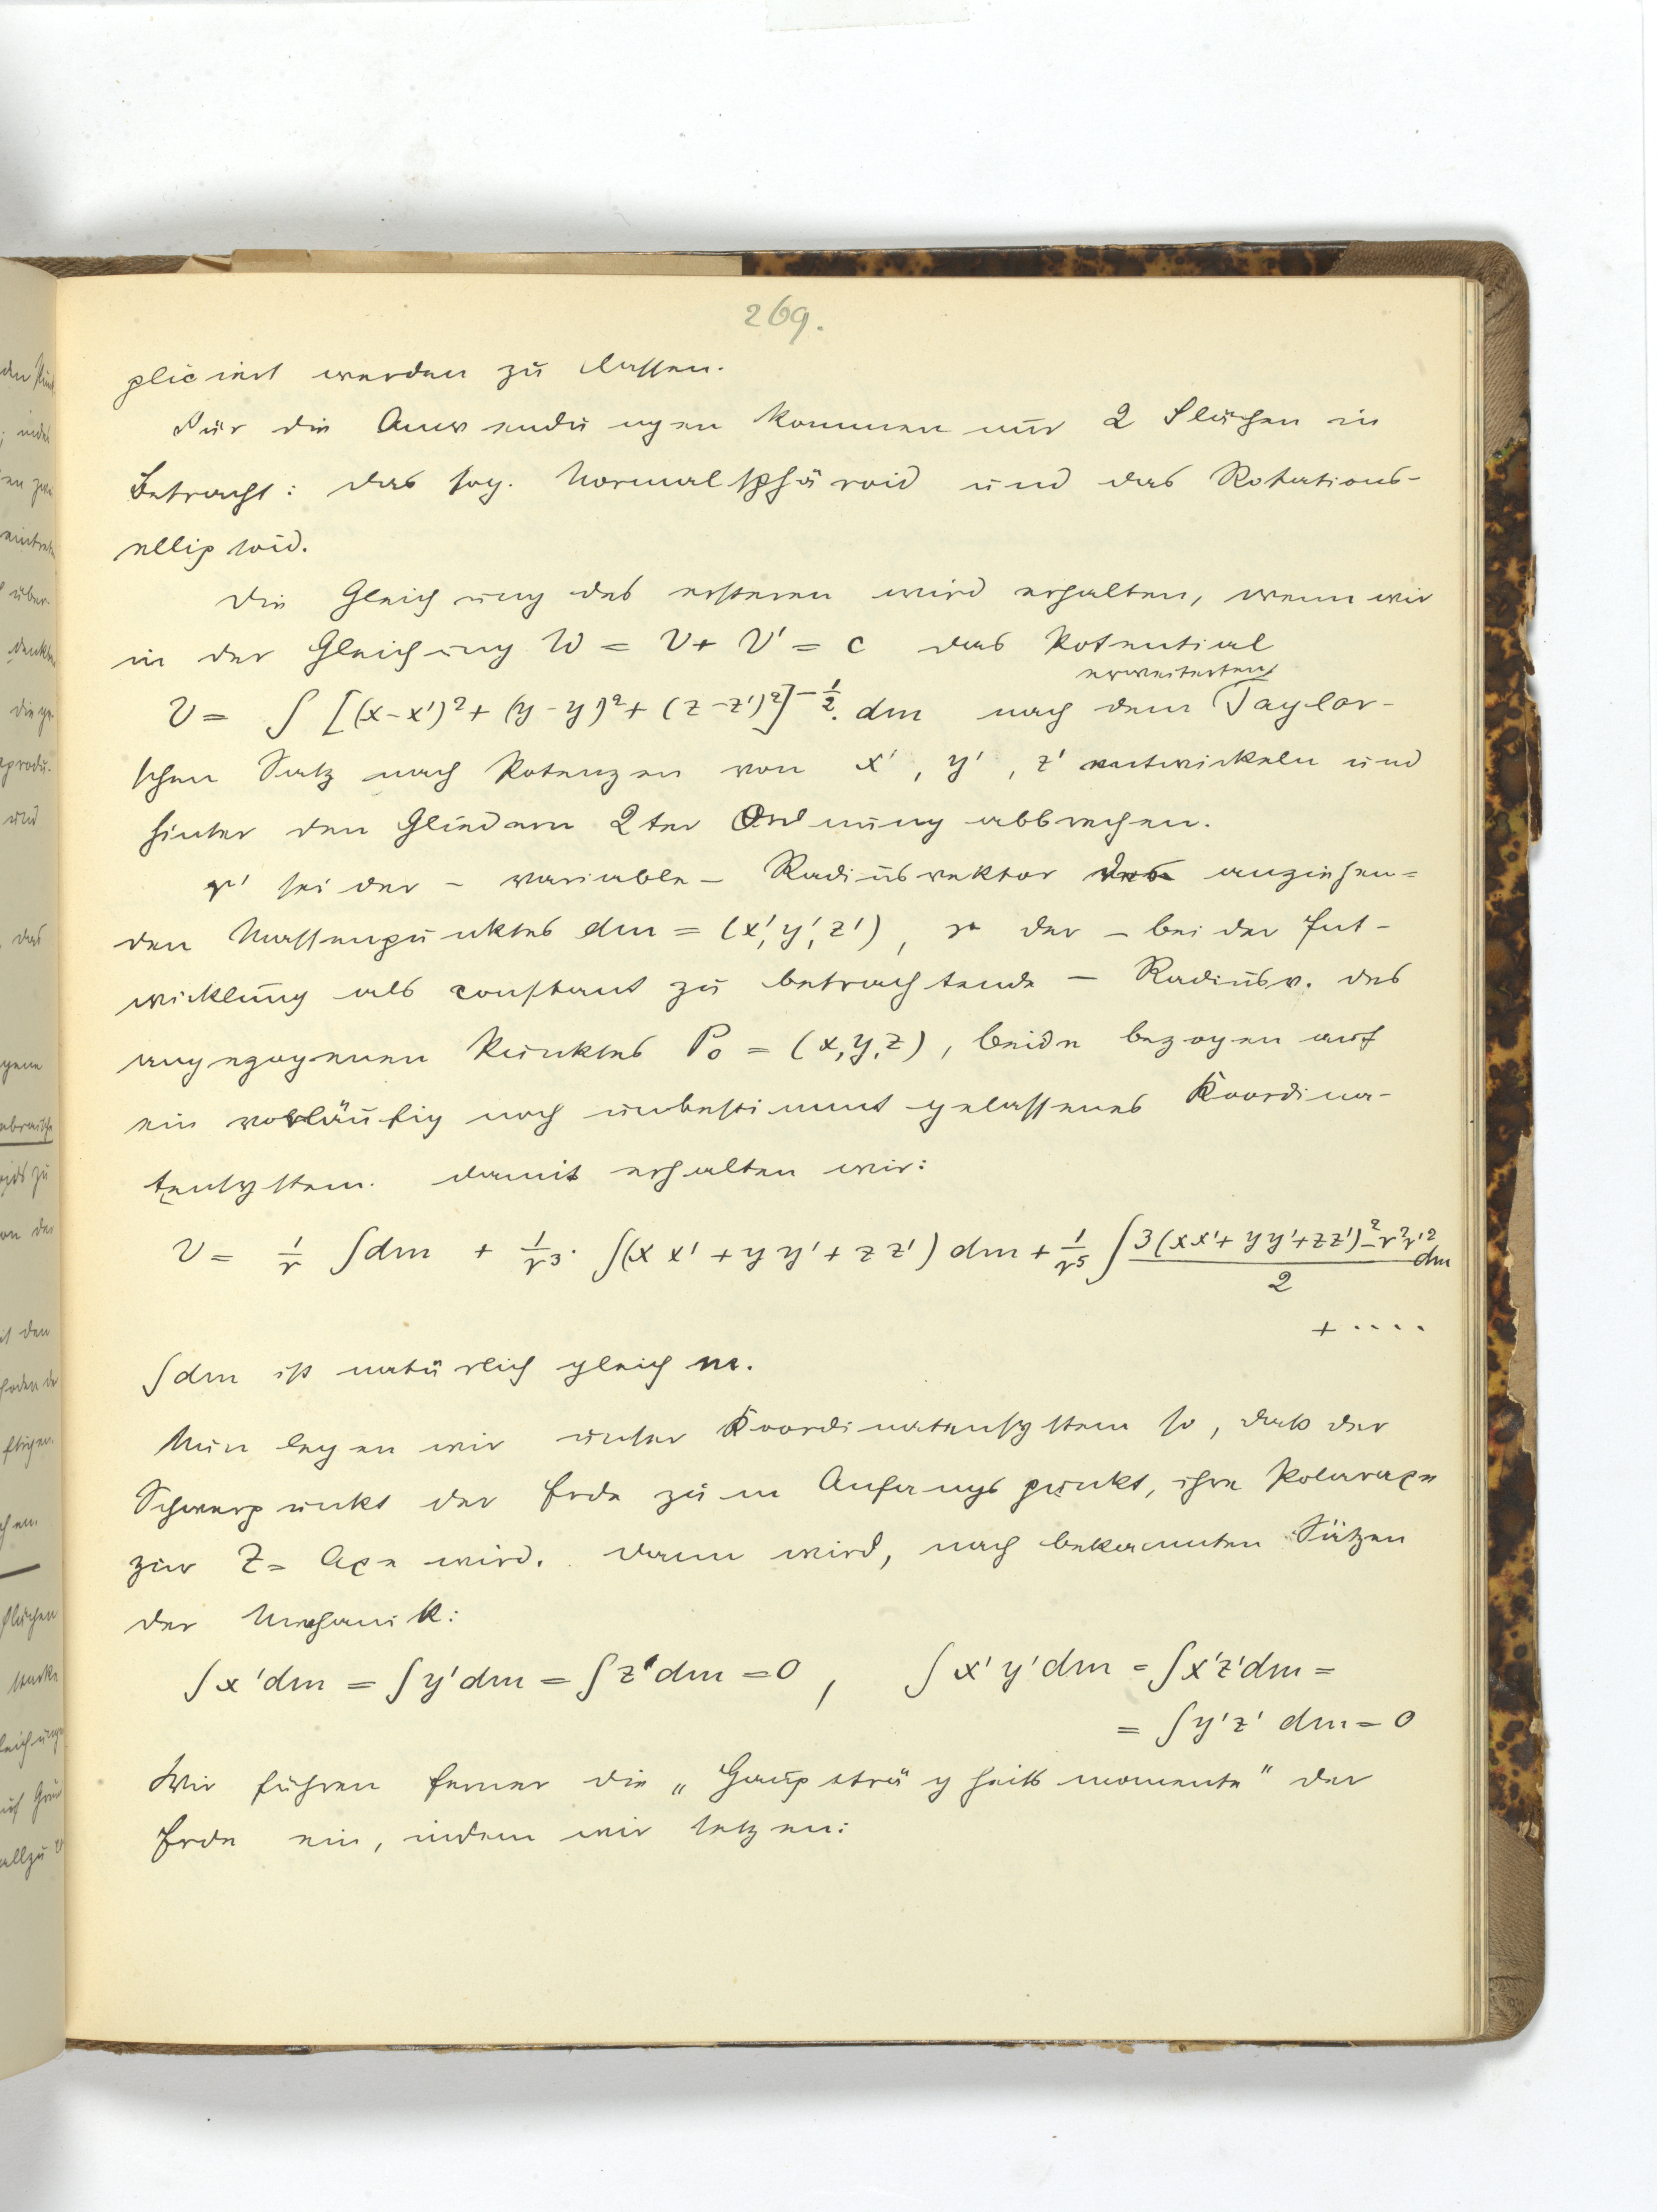 269.
pliciert werden zu lassen.
Für die Anwendungen kommen nur 2 Flächen in
Betracht: das sog. Normalsphäroid und das Rotations-
ellipsoid.
Die Gleichung des ersteren wird erhalten, wenn wir
in der Gleichung W = V + V' = c das Potential
erweiterten
V = ∫ [(x-x')² + (y-y')² + (z-z')²]^{-1/2}. dm nach dem Taylor-
schen Satz nach Potenzen von x', y', z' entwickeln und
hinter den Gliedern 2ter Ordnung abbrechen.
r' sei der – variable – Radiusvektor des anziehen=
den Massenpunktes dm = (x', y', z'), r der – bei der Ent-
wicklung als constant zu betrachtende – Radiusv. des
angezogenen Punktes P₀ = (x, y, z), beide bezogen auf
ein vorläufig noch unbestimmt gelassenes Koordina-
tensystem. Damit erhalten wir:
V = 1/r ∫dm + 1/r³ · ∫(xx' + yy' + zz') dm + 1/r⁵ ∫ (3(xx' + yy' + zz')² - r²r'²)/2 dm
+ ····
∫dm ist natürlich gleich m.
Nun legen wir unser Koordinatensystem so, dass der
Schwerpunkt der Erde zum Anfangspunkt, ihre Polaraxe
zur Z= Axe wird. Dann wird, nach bekannten Sätzen
der Mechanik:
∫x'dm = ∫y'dm = ∫z'dm = 0, ∫x'y'dm = ∫x'z'dm =
= ∫y'z' dm = 0
Wir führen ferner die „Hauptträgheitsmomente" der
Erde ein, indem wir setzen: